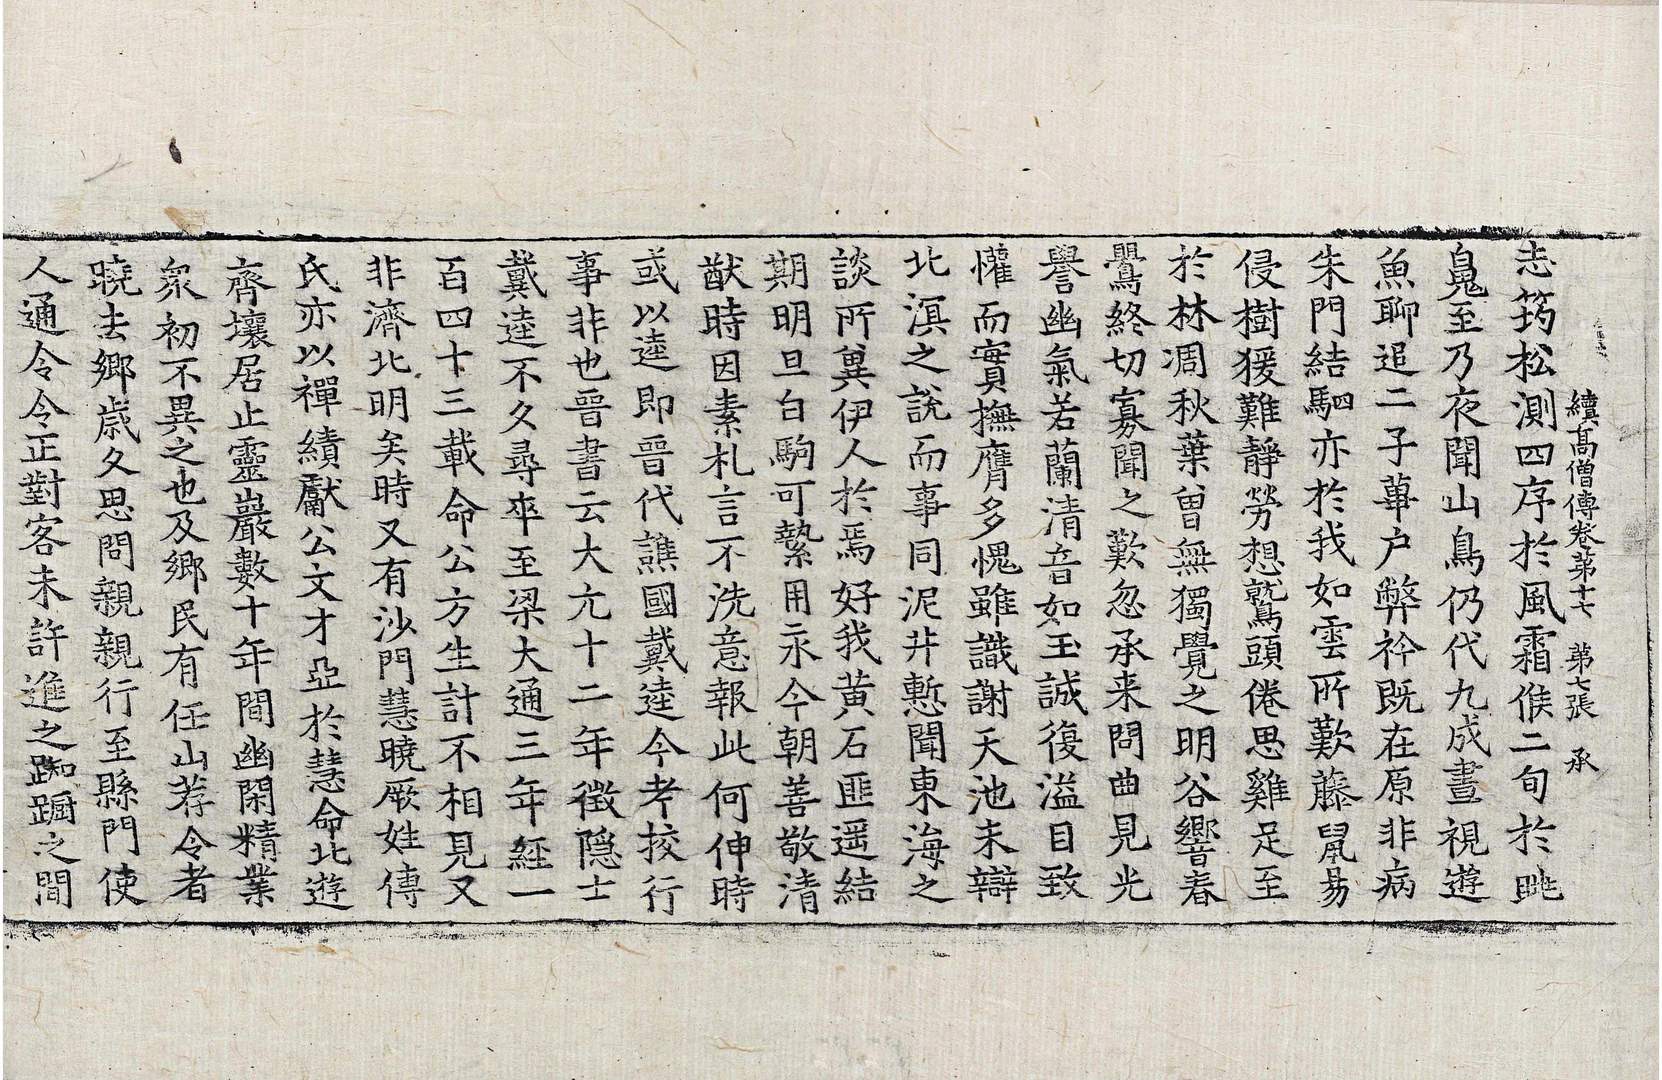 續高僧傳卷第十七 第七張 承
志筠松測四序於風霜候二旬於眺
皃至乃夜聞山鳥仍代九成晝視遊
魚聊追二子蓽户弊衿既在原非病
朱門結駟亦於我如雲所歎藤鼠易
侵樹猨難靜勞想鷲頭倦思雞足至
於林凋秋葉曽無獨覺之明谷響春
鸎終切寡聞之歎忽承来問曲見光
譽幽氣若蘭清音如玉誠復溢目致
懽而實撫膺多愧雖識謝天池未辯
北溟之說而事同泥井慙聞東海之
談所兾伊人於焉好我黄石匪遥結
期明旦白駒可縶用永今朝善敬清
猷時因素札言不洗意報此何伸時
或以逵即晉代譙國戴逵今考挍行
事非也晉書云大亢十二年徴隠士
戴逵不久尋卒至梁大通三年經一
百四十三載命公方生計不相見又
非濟北明矣時又有沙門慧曉厥姓傅
氏亦以禪績獻公文才亞於慧命北遊
齊壤居止靈巖數十年間幽閑精業
衆初不異之也及鄉民有任山荐令者
曉去鄉歳久思問親親行至縣門使
人通令令正對客未許進之踟蹰之間